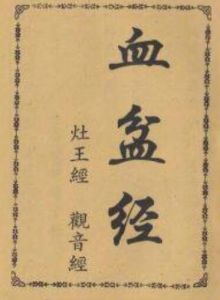 血盆经
灶王經 觀音經